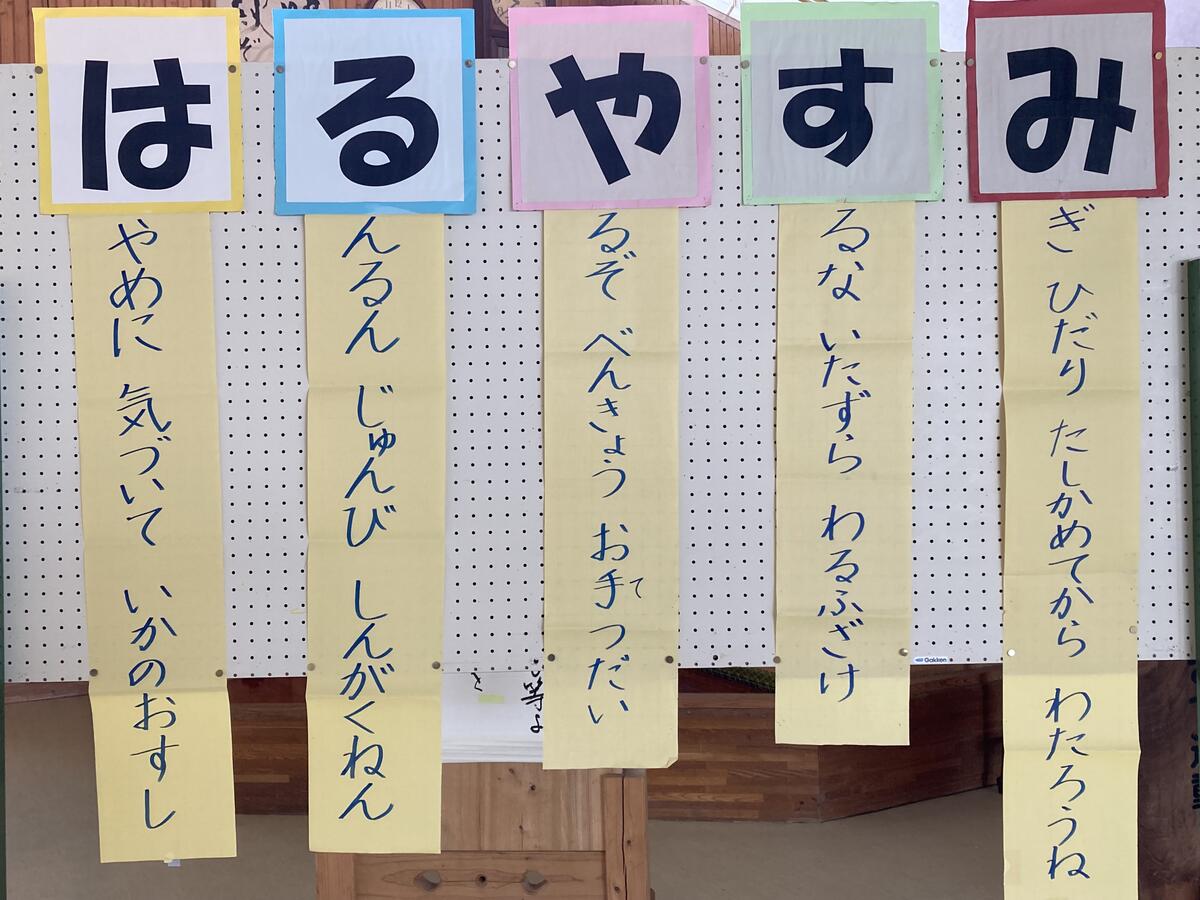 は
やめに 気づいて いかのおすし
る
んるん じゅんび しんがくねん
や
るぞ べんきょう お手つだい
て
す
るな いたずら わるふざけ
み
ぎ ひだり たしかめてから わたろうね
Gakken
等よ